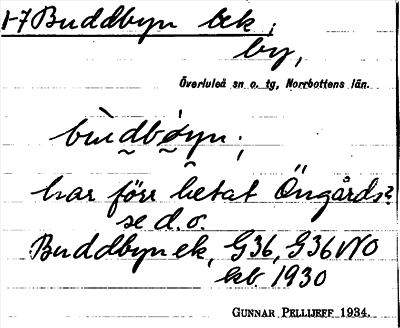 1-7 Buddbyn bek;
by,
Överluleå sn o. tg, Norrbottens län.
bùdbo̍yn;
har förr hetat Öngårds?
se d. o.
Buddbyn ek, G36, G36 NO
kb 1930
GUNNAR PELLIJEFF 1934.